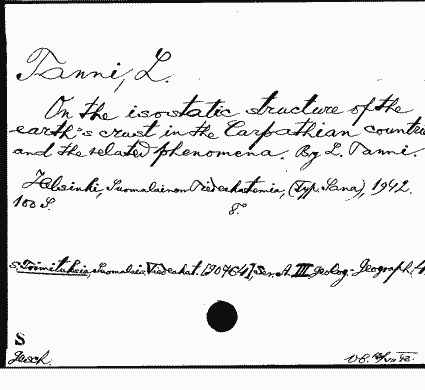 Tanni, L.
On the isostatic structure of the
earth's crust in the Carpathian countri
and the related phenomena. By L. Tanni.
Helsinki, Suomalainen Tiedeakatemia, (Typ. Sana), 1942.
100 S. 8.
s. Toimituksia, Suomalais. Tiedeakat. [30764] Ser. A. III Geolog.-Geograph. 4
S
Gesch.